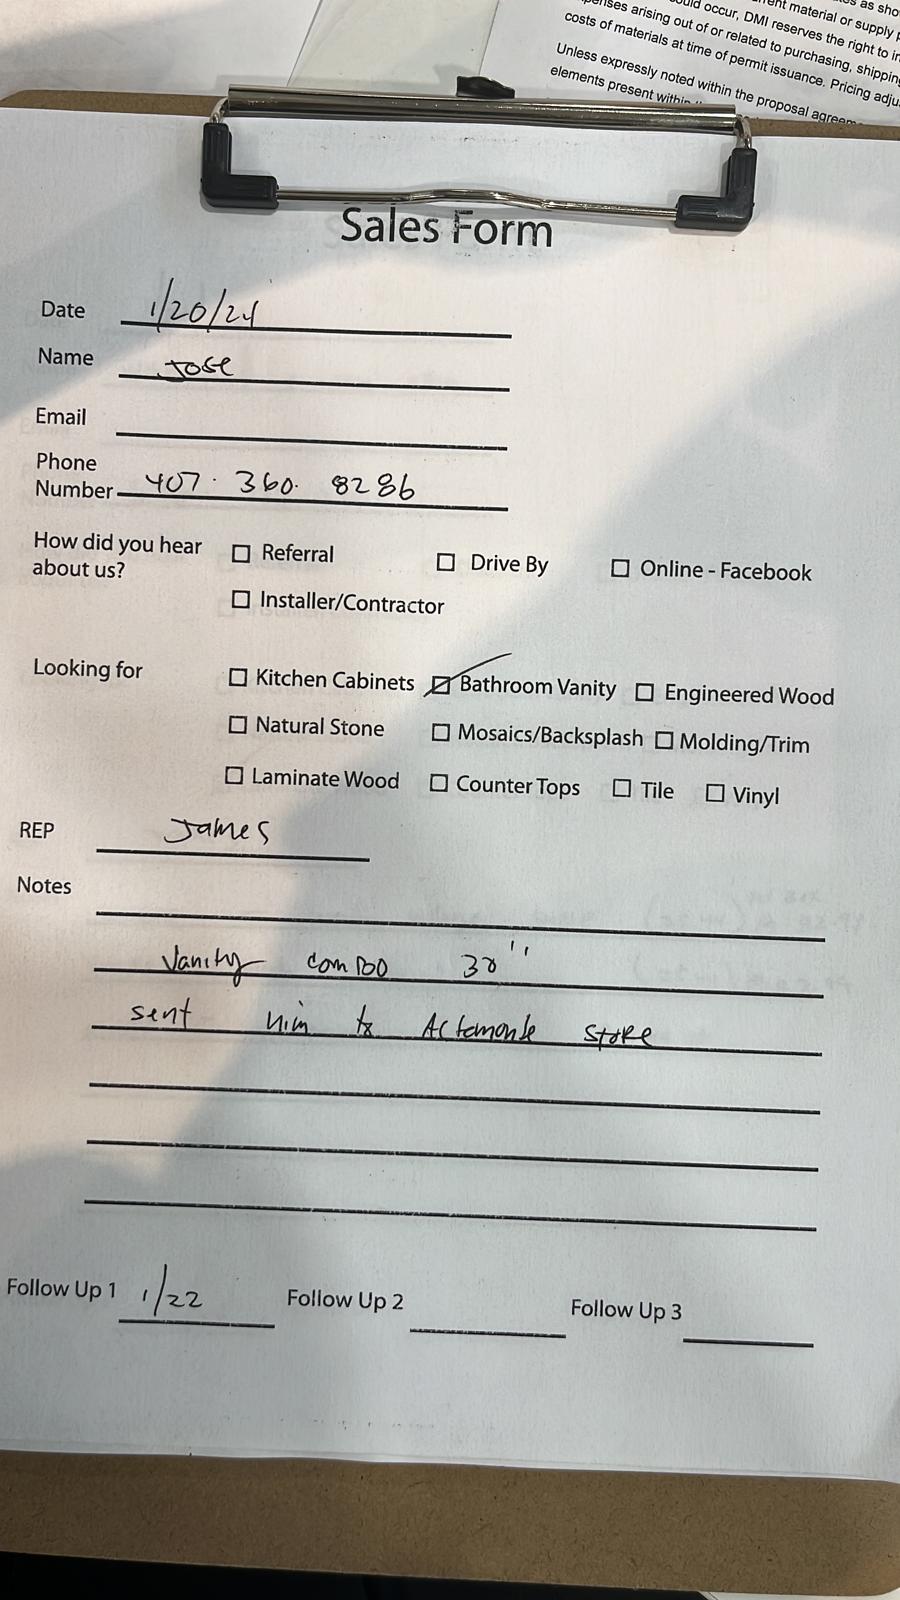 as sho
rent material or supply p
could occur, DMI reserves the right to in
expenses arising out of or related to purchasing, shipping
costs of materials at time of permit issuance. Pricing adju
Unless expressly noted within the proposal agreem
elements present within
Sales Form
Date 1/20/24
Name Jose
Email
Phone
Number 407. 360. 8286
How did you hear
about us?
Referral Drive By Online - Facebook
Installer/Contractor
Looking for Kitchen Cabinets Bathroom Vanity Engineered Wood
Natural Stone Mosaics/Backsplash Molding/Trim
Laminate Wood Counter Tops Tile Vinyl
REP James
Notes
Vanity combo 30''
sent him to Altamonte store
Follow Up 1 1/22 Follow Up 2 Follow Up 3